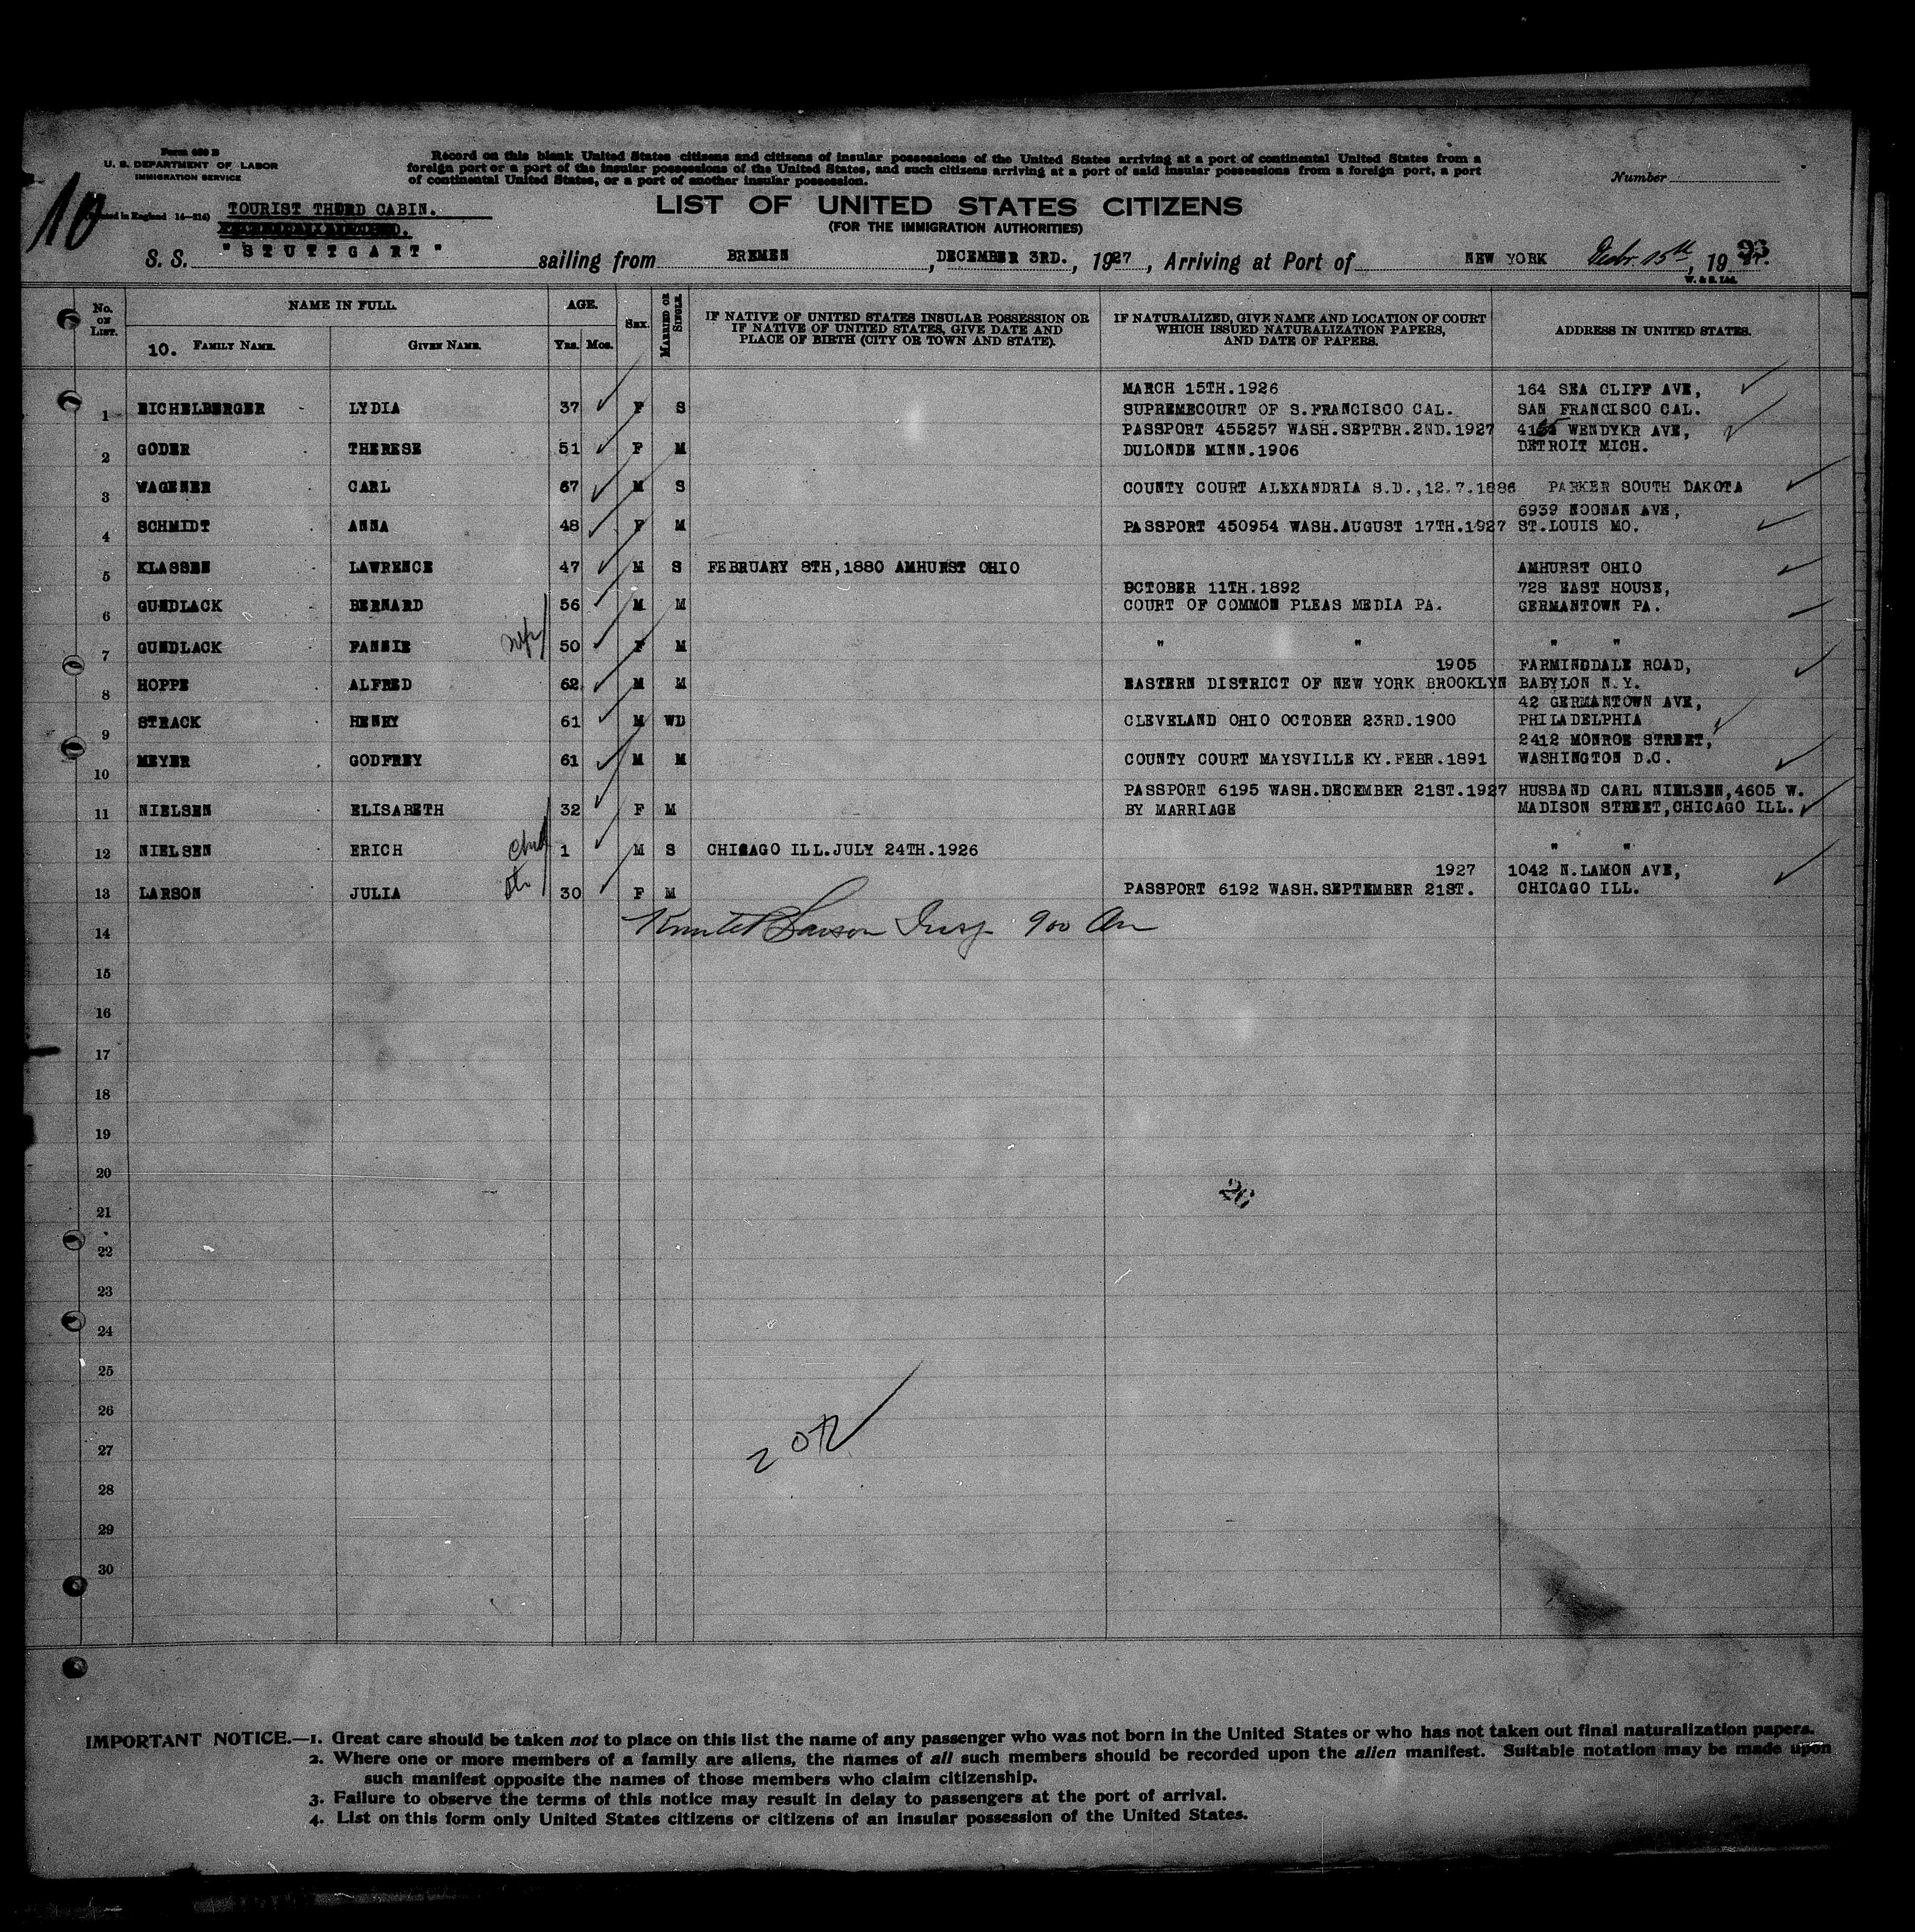 Form 630 B
U. S. DEPARTMENT OF LABOR
IMMIGRATION SERVICE
Record on this blank United States citizens and citizens of insular possessions of the United States arriving at a port of continental United States from a
foreign port or a port of the insular possessions of the United States, and such citizens arriving at a port of said insular possessions from a foreign port, a port
of continental United States, or a port of another insular possession.
Number
10
(Printed in England 14—214)
TOURIST THIRD CABIN.
LIST OF UNITED STATES CITIZENS
(FOR THE IMMIGRATION AUTHORITIES)
S. S. "STUTTGART" sailing from BREMEN, DECEMBER 3RD., 1927, Arriving at Port of NEW YORK 15th, 19
W. & S. Ltd.
No. ON LIST.
NAME IN FULL.
AGE.
SEX.
MARRIED OR SINGLE.
IF NATIVE OF UNITED STATES INSULAR POSSESSION OR
IF NATIVE OF UNITED STATES, GIVE DATE AND
PLACE OF BIRTH (CITY OR TOWN AND STATE).
IF NATURALIZED, GIVE NAME AND LOCATION OF COURT
WHICH ISSUED NATURALIZATION PAPERS,
AND DATE OF PAPERS.
ADDRESS IN UNITED STATES.
10. FAMILY NAME. GIVEN NAME. YRS. MOS.
MARCH 15TH.1926 164 SEA CLIFF AVE,
1 EICHELBERGER LYDIA 37 F S SUPREMECOURT OF S.FRANCISCO CAL. SAN FRANCISCO CAL.
PASSPORT 455257 WASH.SEPTBR.2ND.1927 WENDYKR AVE,
2 GODER THERESE 51 F M DULONDE MINN.1906 DETROIT MICH.
3 WAGENER CARL 67 M S COUNTY COURT ALEXANDRIA S.D.,12.7.1886 PARKER SOUTH DAKOTA
6939 NOONAN AVE,
4 SCHMIDT ANNA 48 F M PASSPORT 450954 WASH.AUGUST 17TH.1927 ST.LOUIS MO.
5 KLASSEN LAWRENCE 47 M S FEBRUARY 8TH,1880 AMHURST OHIO AMHURST OHIO
OCTOBER 11TH.1892 728 EAST HOUSE,
6 GUNDLACK BERNARD 56 M M COURT OF COMMON PLEAS MEDIA PA. GERMANTOWN PA.
7 GUNDLACK FANNIE 50 F M " " " "
1905 FARMINGDALE ROAD,
8 HOPPE ALFRED 62 M M EASTERN DISTRICT OF NEW YORK BROOKLYN BABYLON N.Y.
42 GERMANTOWN AVE,
9 STRACK HENRY 61 M WD CLEVELAND OHIO OCTOBER 23RD.1900 PHILADELPHIA
2412 MONROE STREET,
10 MEYER GODFREY 61 M M COUNTY COURT MAYSVILLE KY.FEBR.1891 WASHINGTON D.C.
PASSPORT 6195 WASH.DECEMBER 21ST.1927 HUSBAND CARL NIELSEN,4605 W.
11 NIELSEN ELISABETH 32 F M BY MARRIAGE MADISON STREET,CHICAGO ILL.
12 NIELSEN ERICH 1 M S CHICAGO ILL.JULY 24TH.1926 " "
1927 1042 N.LAMON AVE,
13 LARSON JULIA 30 F M PASSPORT 6192 WASH.SEPTEMBER 21ST. CHICAGO ILL.
14 Insp 900 Am
15
16
17
18
19
20
26
21
22
23
24
25
26
27
28
29
30
IMPORTANT NOTICE.—1. Great care should be taken not to place on this list the name of any passenger who was not born in the United States or who has not taken out final naturalization papers.
2. Where one or more members of a family are aliens, the names of all such members should be recorded upon the alien manifest. Suitable notation may be made upon
such manifest opposite the names of those members who claim citizenship.
3. Failure to observe the terms of this notice may result in delay to passengers at the port of arrival.
4. List on this form only United States citizens or citizens of an insular possession of the United States.